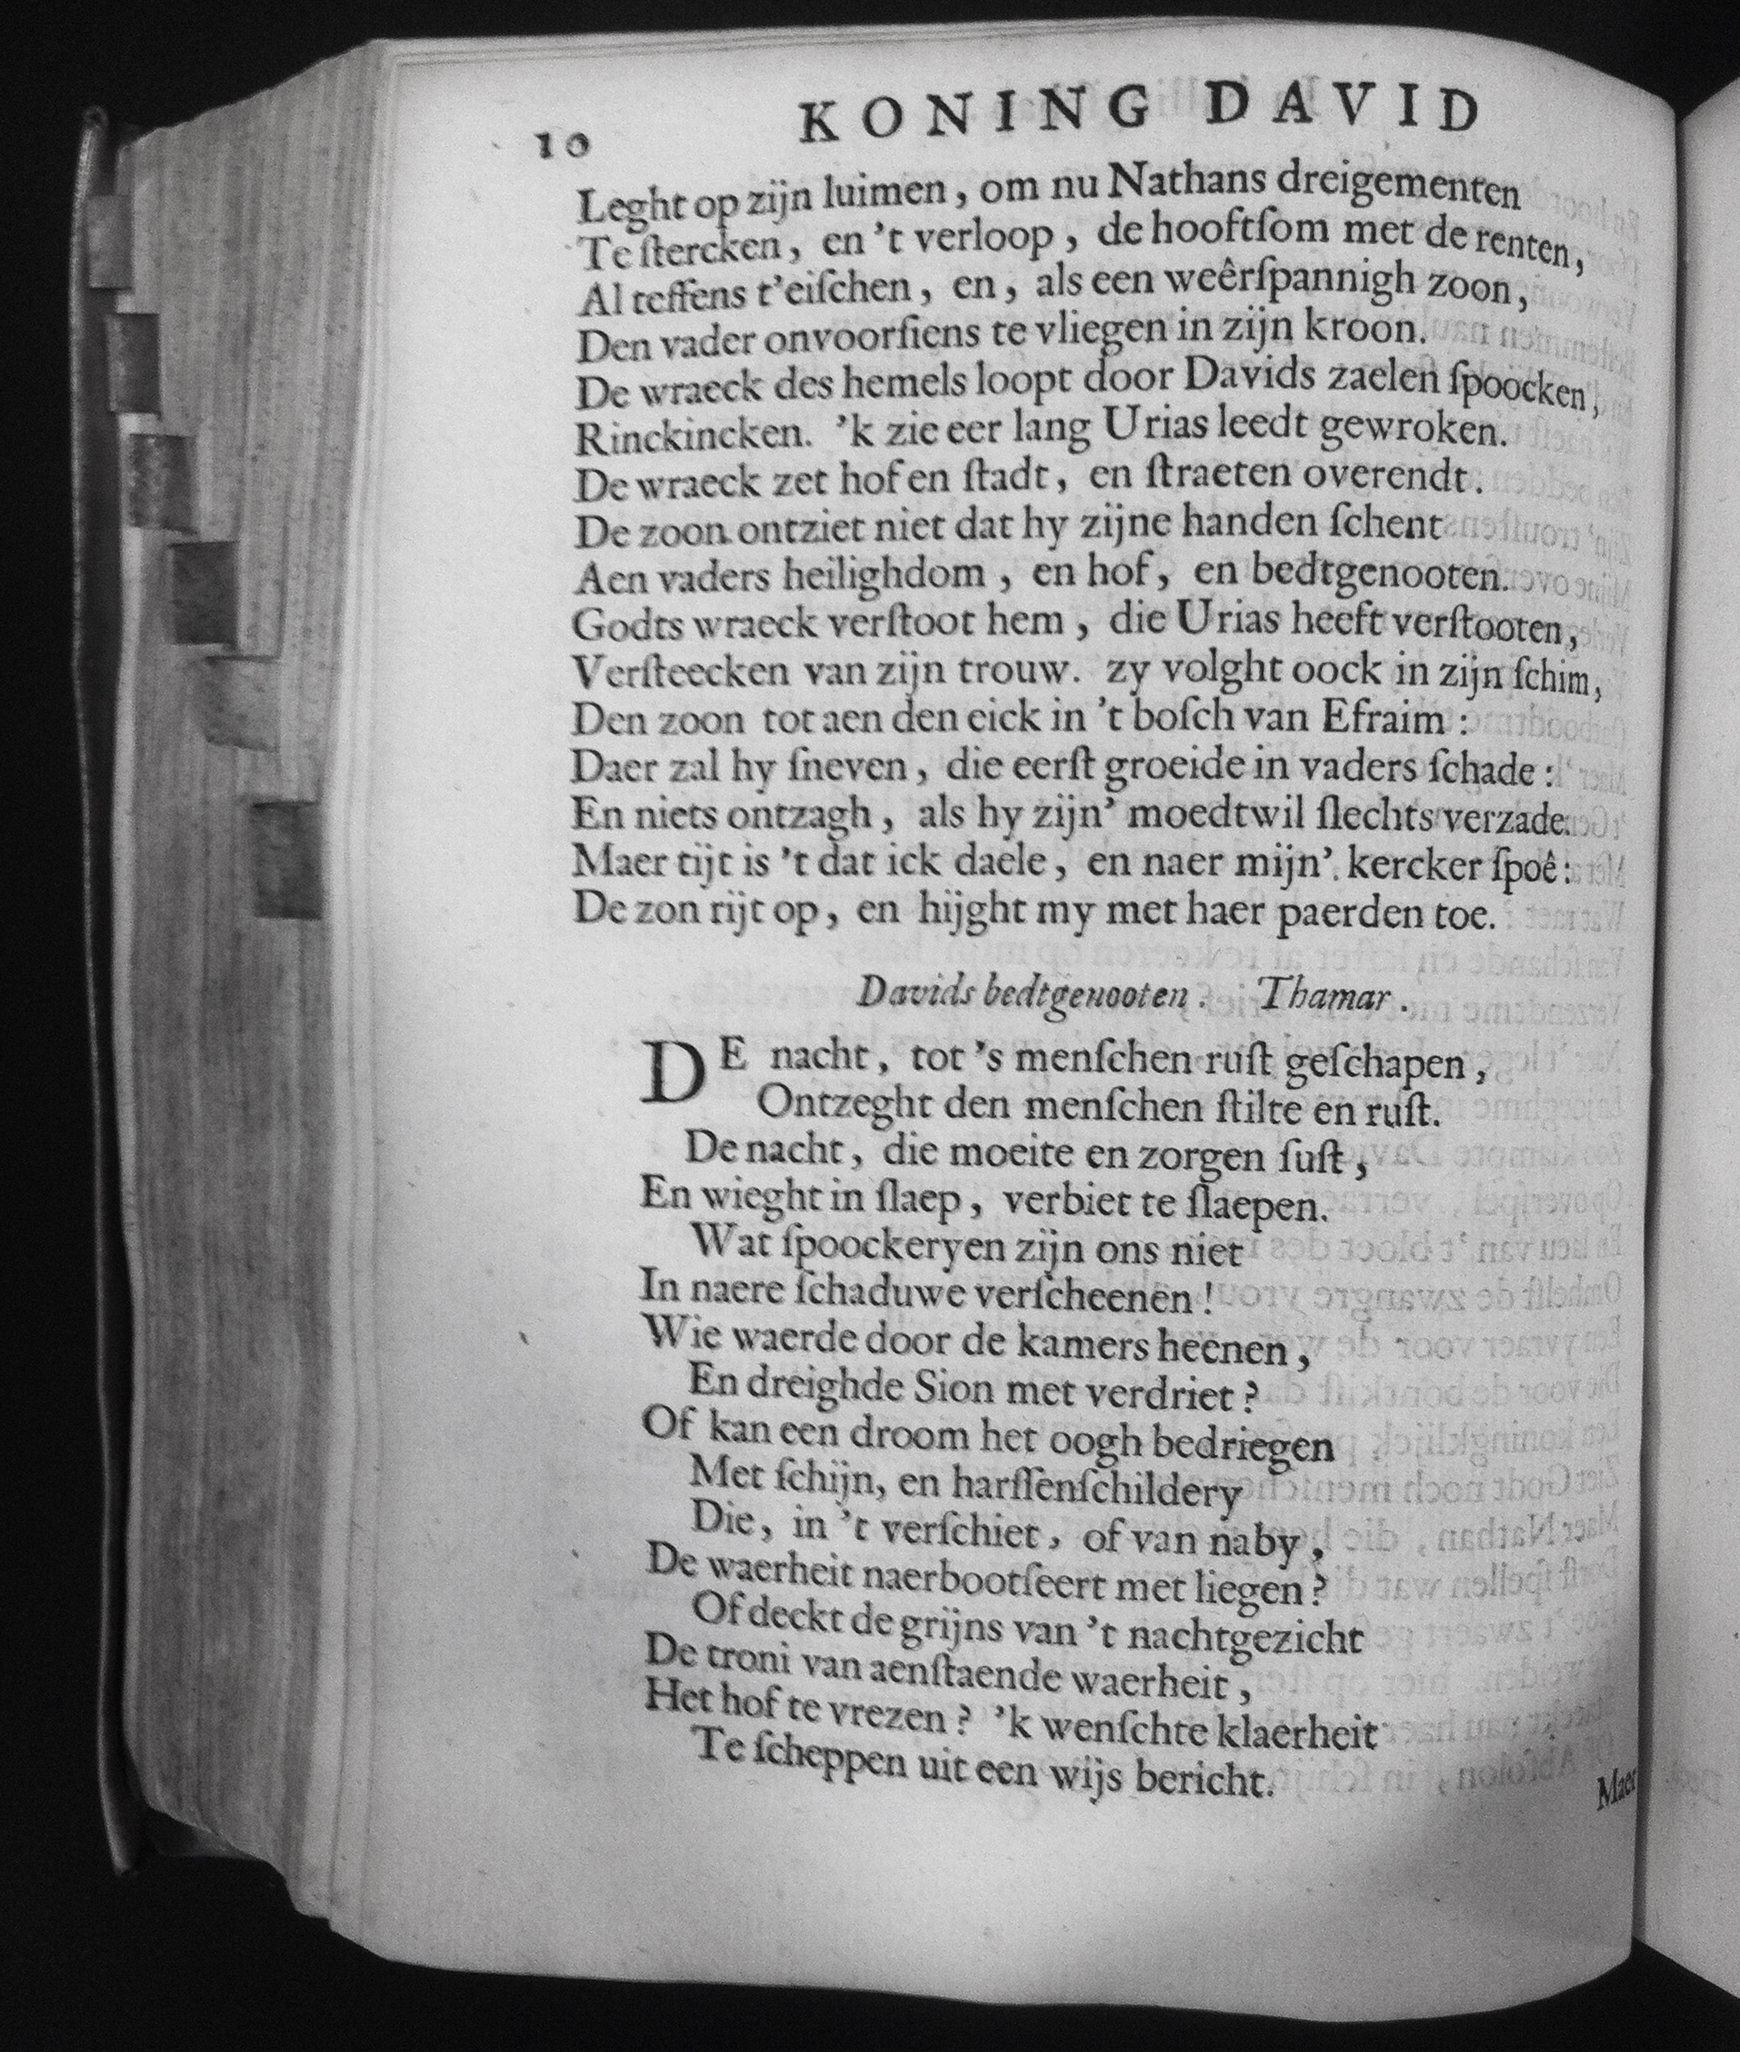 10 KONING DAVID
Leght op zijn luimen, om nu Nathans dreigementen
Te ſtercken, en 't verloop, de hooftſom met de renten,
Al teffens t'eiſchen, en, als een weêrſpannigh zoon,
Den vader onvoorſiens te vliegen in zijn kroon.
De wraeck des hemels loopt door Davids zaelen ſpoocken,
Rinckincken. 'k zie eer lang Urias leedt gewroken.
De wraeck zet hof en ſtadt, en ſtraeten overendt.
De zoon ontziet niet dat hy zijne handen ſchent
Aen vaders heilighdom, en hof, en bedtgenooten.
Godts wraeck verſtoot hem, die Urias heeft verſtooten,
Verſteecken van zijn trouw. zy volght oock in zijn ſchim,
Den zoon tot aen den eick in 't boſch van Efraim:
Daer zal hy ſneven, die eerſt groeide in vaders ſchade:
En niets ontzagh, als hy zijn' moedtwil ſlechts verzade.
Maer tijt is 't dat ick daele, en naer mijn' kercker ſpoê:
De zon rijt op, en hijght my met haer paerden toe.
Davids bedtgenooten. Thamar.
DE nacht, tot 's menſchen ruſt geſchapen,
Ontzeght den menſchen ſtilte en ruſt.
De nacht, die moeite en zorgen ſuſt,
En wieght in ſlaep, verbiet te ſlaepen.
Wat ſpoockeryen zijn ons niet
In naere ſchaduwe verſcheenen!
Wie waerde door de kamers heenen,
En dreighde Sion met verdriet?
Of kan een droom het oogh bedriegen
Met ſchijn, en harſſenſchildery
Die, in 't verſchiet, of van naby,
De waerheit naerbootſeert met liegen?
Of deckt de grijns van 't nachtgezicht
De troni van aenſtaende waerheit,
Het hof te vrezen? 'k wenſchte klaerheit
Te ſcheppen uit een wijs bericht.
Maer